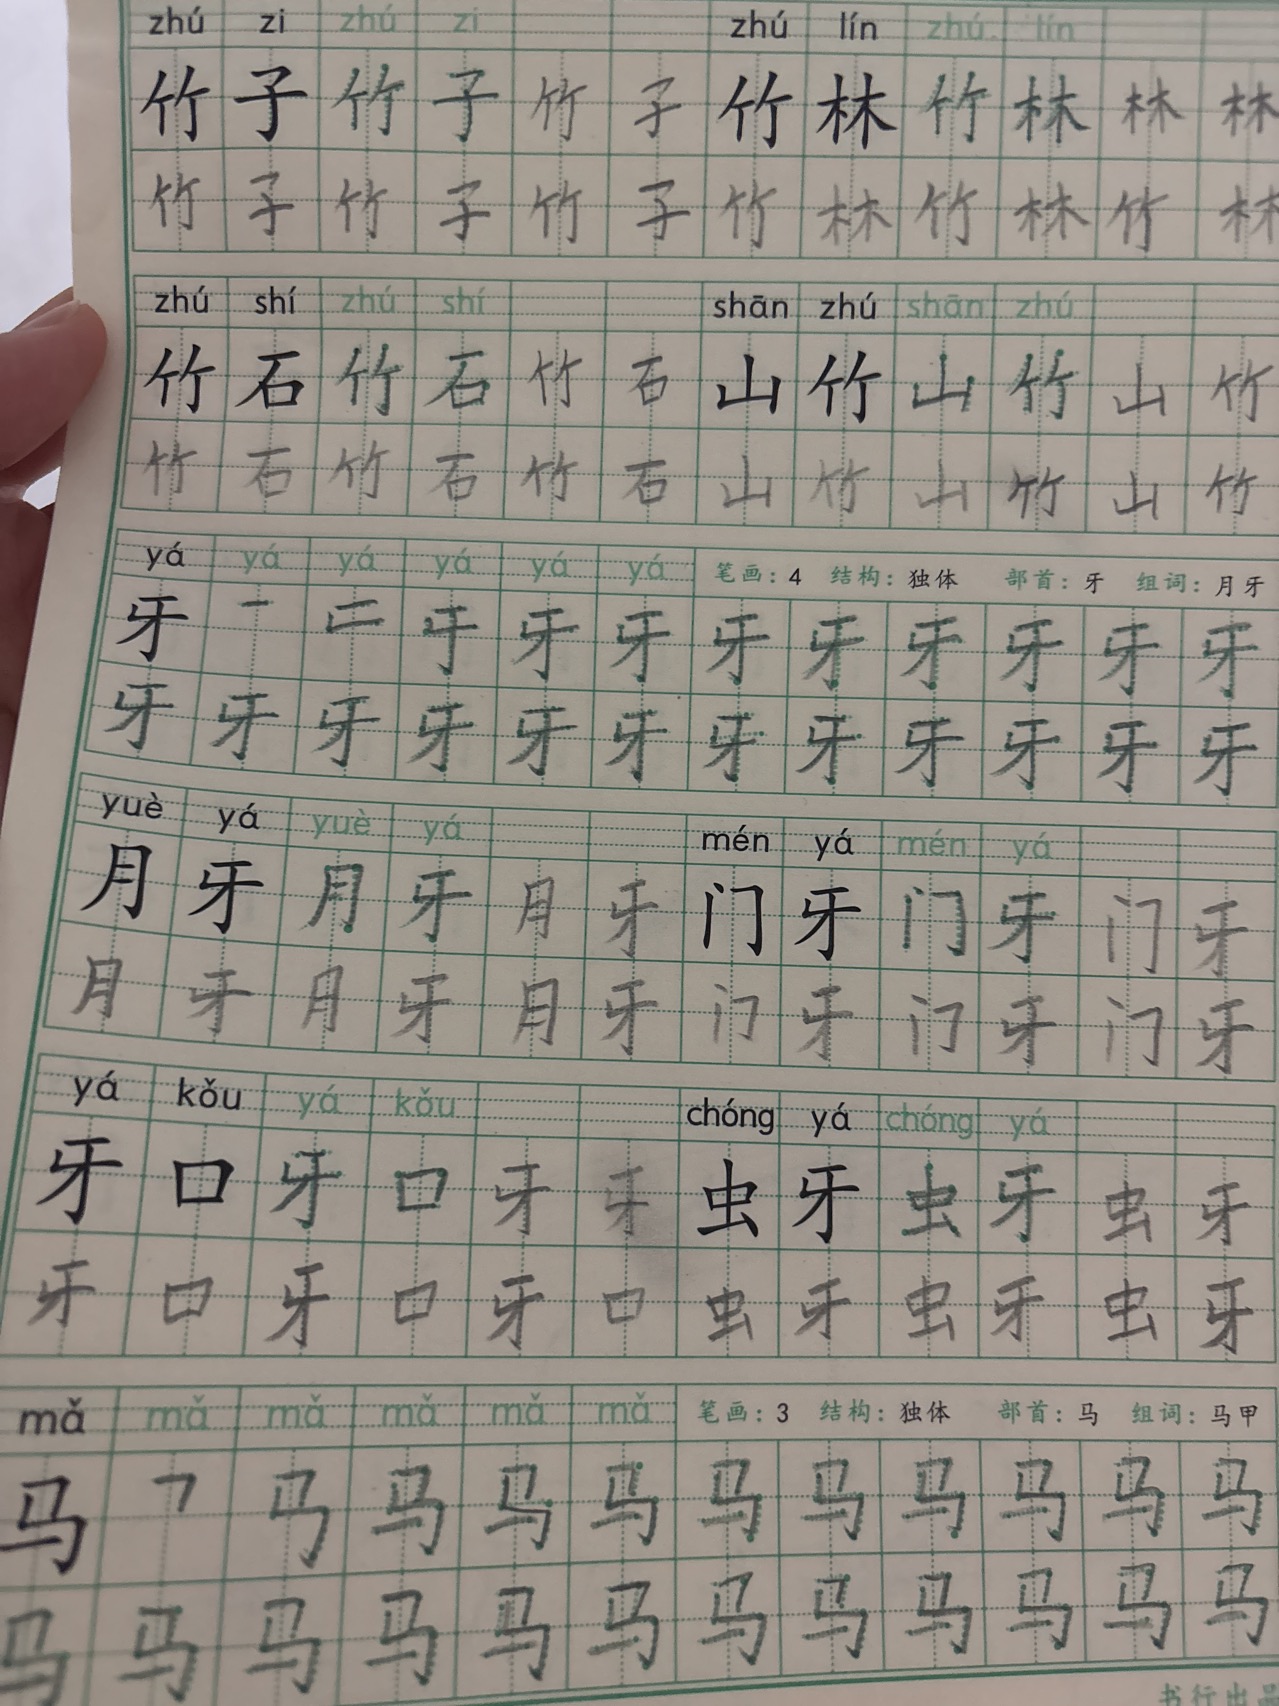 zhú zi zhú zi zhú lín zhú lín
竹 子 竹 子 竹 子 竹 林 竹 林 林 林
竹 子 竹 子 竹 子 竹 林 竹 林 竹 林
zhú shí zhú shí shān zhú shān zhú
竹 石 竹 石 竹 石 山 竹 山 竹 山 竹
竹 石 竹 石 竹 石 山 竹 山 竹 山 竹
yá yá yá yá yá yá 笔画：4 结构：独体 部首：牙 组词：月牙
牙 一 二 于 牙 牙 牙 牙 牙 牙 牙 牙
牙 牙 牙 牙 牙 牙 牙 牙 牙 牙 牙 牙
yuè yá yuè yá mén yá mén yá
月 牙 月 牙 月 牙 门 牙 门 牙 门 牙
月 牙 月 牙 月 牙 门 牙 门 牙 门 牙
yá kǒu yá kǒu chóng yá chóng yá
牙 口 牙 口 牙 牙 虫 牙 虫 牙 虫 牙
牙 口 牙 口 牙 口 虫 牙 虫 牙 虫 牙
mǎ mǎ mǎ mǎ mǎ mǎ 笔画：3 结构：独体 部首：马 组词：马甲
马 ㇕ 马 马 马 马 马 马 马 马 马
马 马 马 马 马 马 马 马 马 马 马 马
书行出品